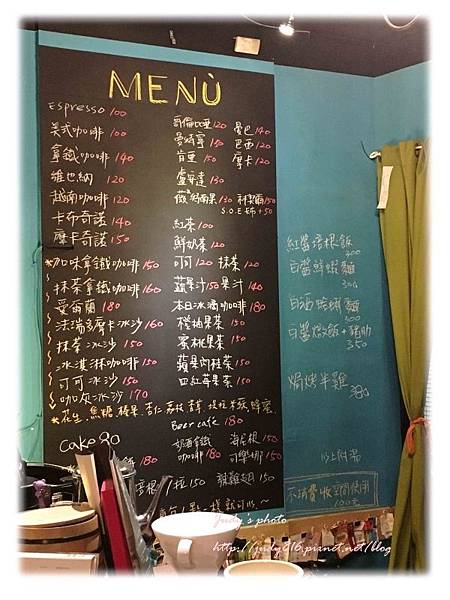 MENÙ
Espresso 100
美式咖啡 100
拿鐵咖啡 140
維也納 120
越南咖啡 120
卡布奇諾 140
摩卡奇諾 150
*加味拿鐵咖啡 150
抹茶拿鐵咖啡 160
愛爾蘭 180
法瑞多摩卡冰沙 160
抹茶冰沙 150
冰淇淋咖啡 150
可可冰沙 150
咖啡冰沙 170
哥倫比亞 120 曼巴 140
曼特寧 150 巴西 120
肯亞 150 摩卡 120
盧安達 130
130 150
S.O.E +50
紅茶 100
鮮奶茶 120
可可 120 抹茶 120
蔬果汁 150 果汁 140
本日冰滴咖啡 180
橙柚果茶 150
蜜桃果茶 150
蘋果肉桂茶 150
四紅莓果茶 150
*花生.焦糖.榛果.杏仁
Beer cafe 180
Cake 80
奶酒拿鐵
咖啡 180
150
150
180
150
150
紅醬培根飯
300
白醬鮮蝦麵
300
白酒蛤蜊麵
300
白醬燉飯+豬肋
350
焗烤半雞 380
以上附湯
不消費收空間使用
100元
Judy's photo
http://judy616.pixnet.net/blog